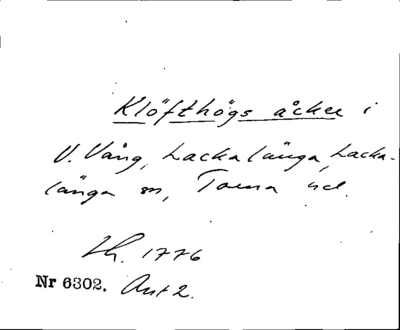 Klöfthögs åcker i
V. Vång, Lackalänga, Lacka-
länga sn, Torna hd.
Lh. 1776
Nr 6302. Ant 2.